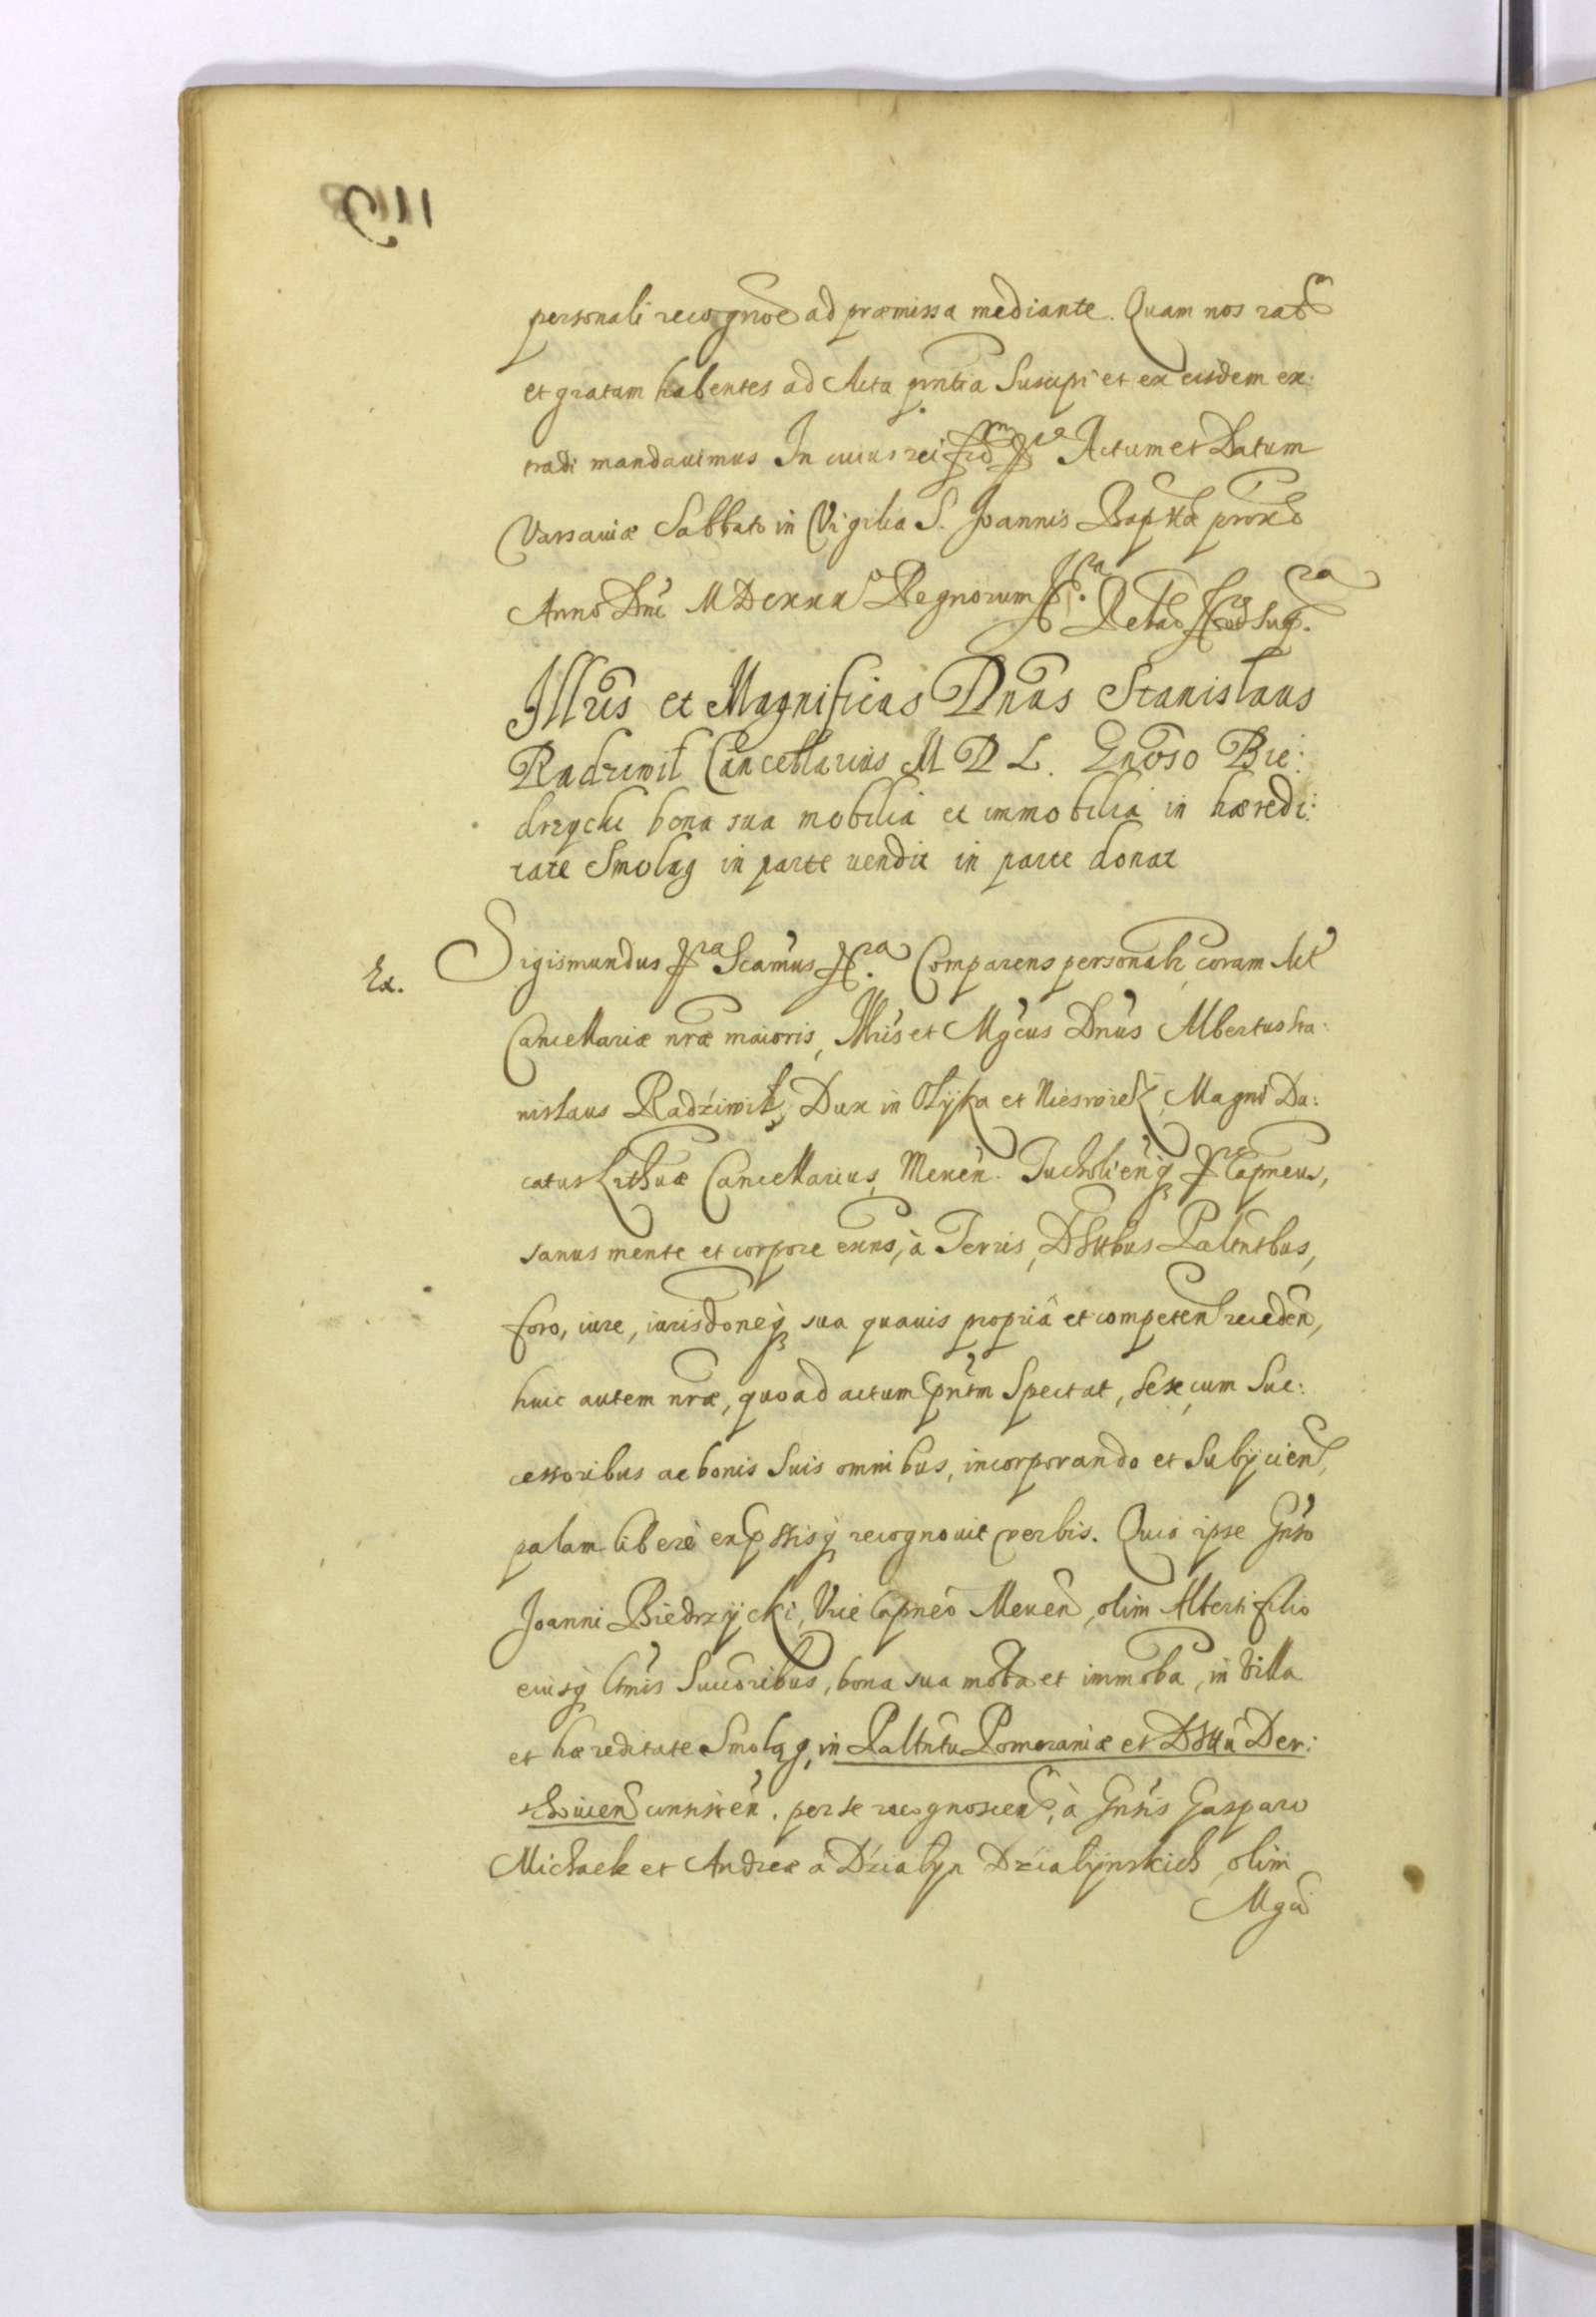 personali recognoe ad præmissa mediante. Quam nos rat̃m
et gratam habentes ad Acta pñtia Suscipi et ex eisdem ex:
tradi mandauimus In cuius rei fid̃m Actum et Datum
Varsauiæ Sabbato in Vigilia S. Joannis Baptæ prox̃o
Anno Dñi MDCXXX Regnorum Relao sup.
Illris et Magnificus Dnus Stanislaus
Radziwil Cancellarius M D L. Gnoso Bie:
drzycki bona sua mobilia et immobilia in hæredi:
tate Smoląg in parte vendit in parte donat
Ex. Sigismundus Scāmus Comparens personalr̃ coram Act̃
Cancellariæ nræ maioris, Illris et Mgcus Dnus Albertus Sta:
nislaus Radźiwił, Dux in Ołyka et Nieswież, Magni Du:
catus Lithuæ Cancellarius, Meuen. Tucholien̄q Capneus,
sanus mente et corpore exns, à Terris, Dsttibus Paltntbus,
foro, iure, iurisdoneq sua quauis propriâ et competen̄ receden̄,
huic autem nræ, quoad actum pñtm Spectat, sese cum Suc:
cessoribus ac bonis Suis omnibus, incorporando et Subijcien̄,
palam liberè expssisq recognouit verbis. Quio ipse Gnso
Joanni Biedrzycki, Vice Capneo Meuen̄, olim Alberti filio
eiusq ltmis Succoribus, bona sua moba et immoba, in Villa
et hæreditate Smoląg, in Paltntu Pomeraniæ et Dsttu Der:
schouien̄ consisten̄. per se recognoscen̄, à Gnsis Gasparo
Michaele et Andrea à Działyn Działyńskich olim
Mgci